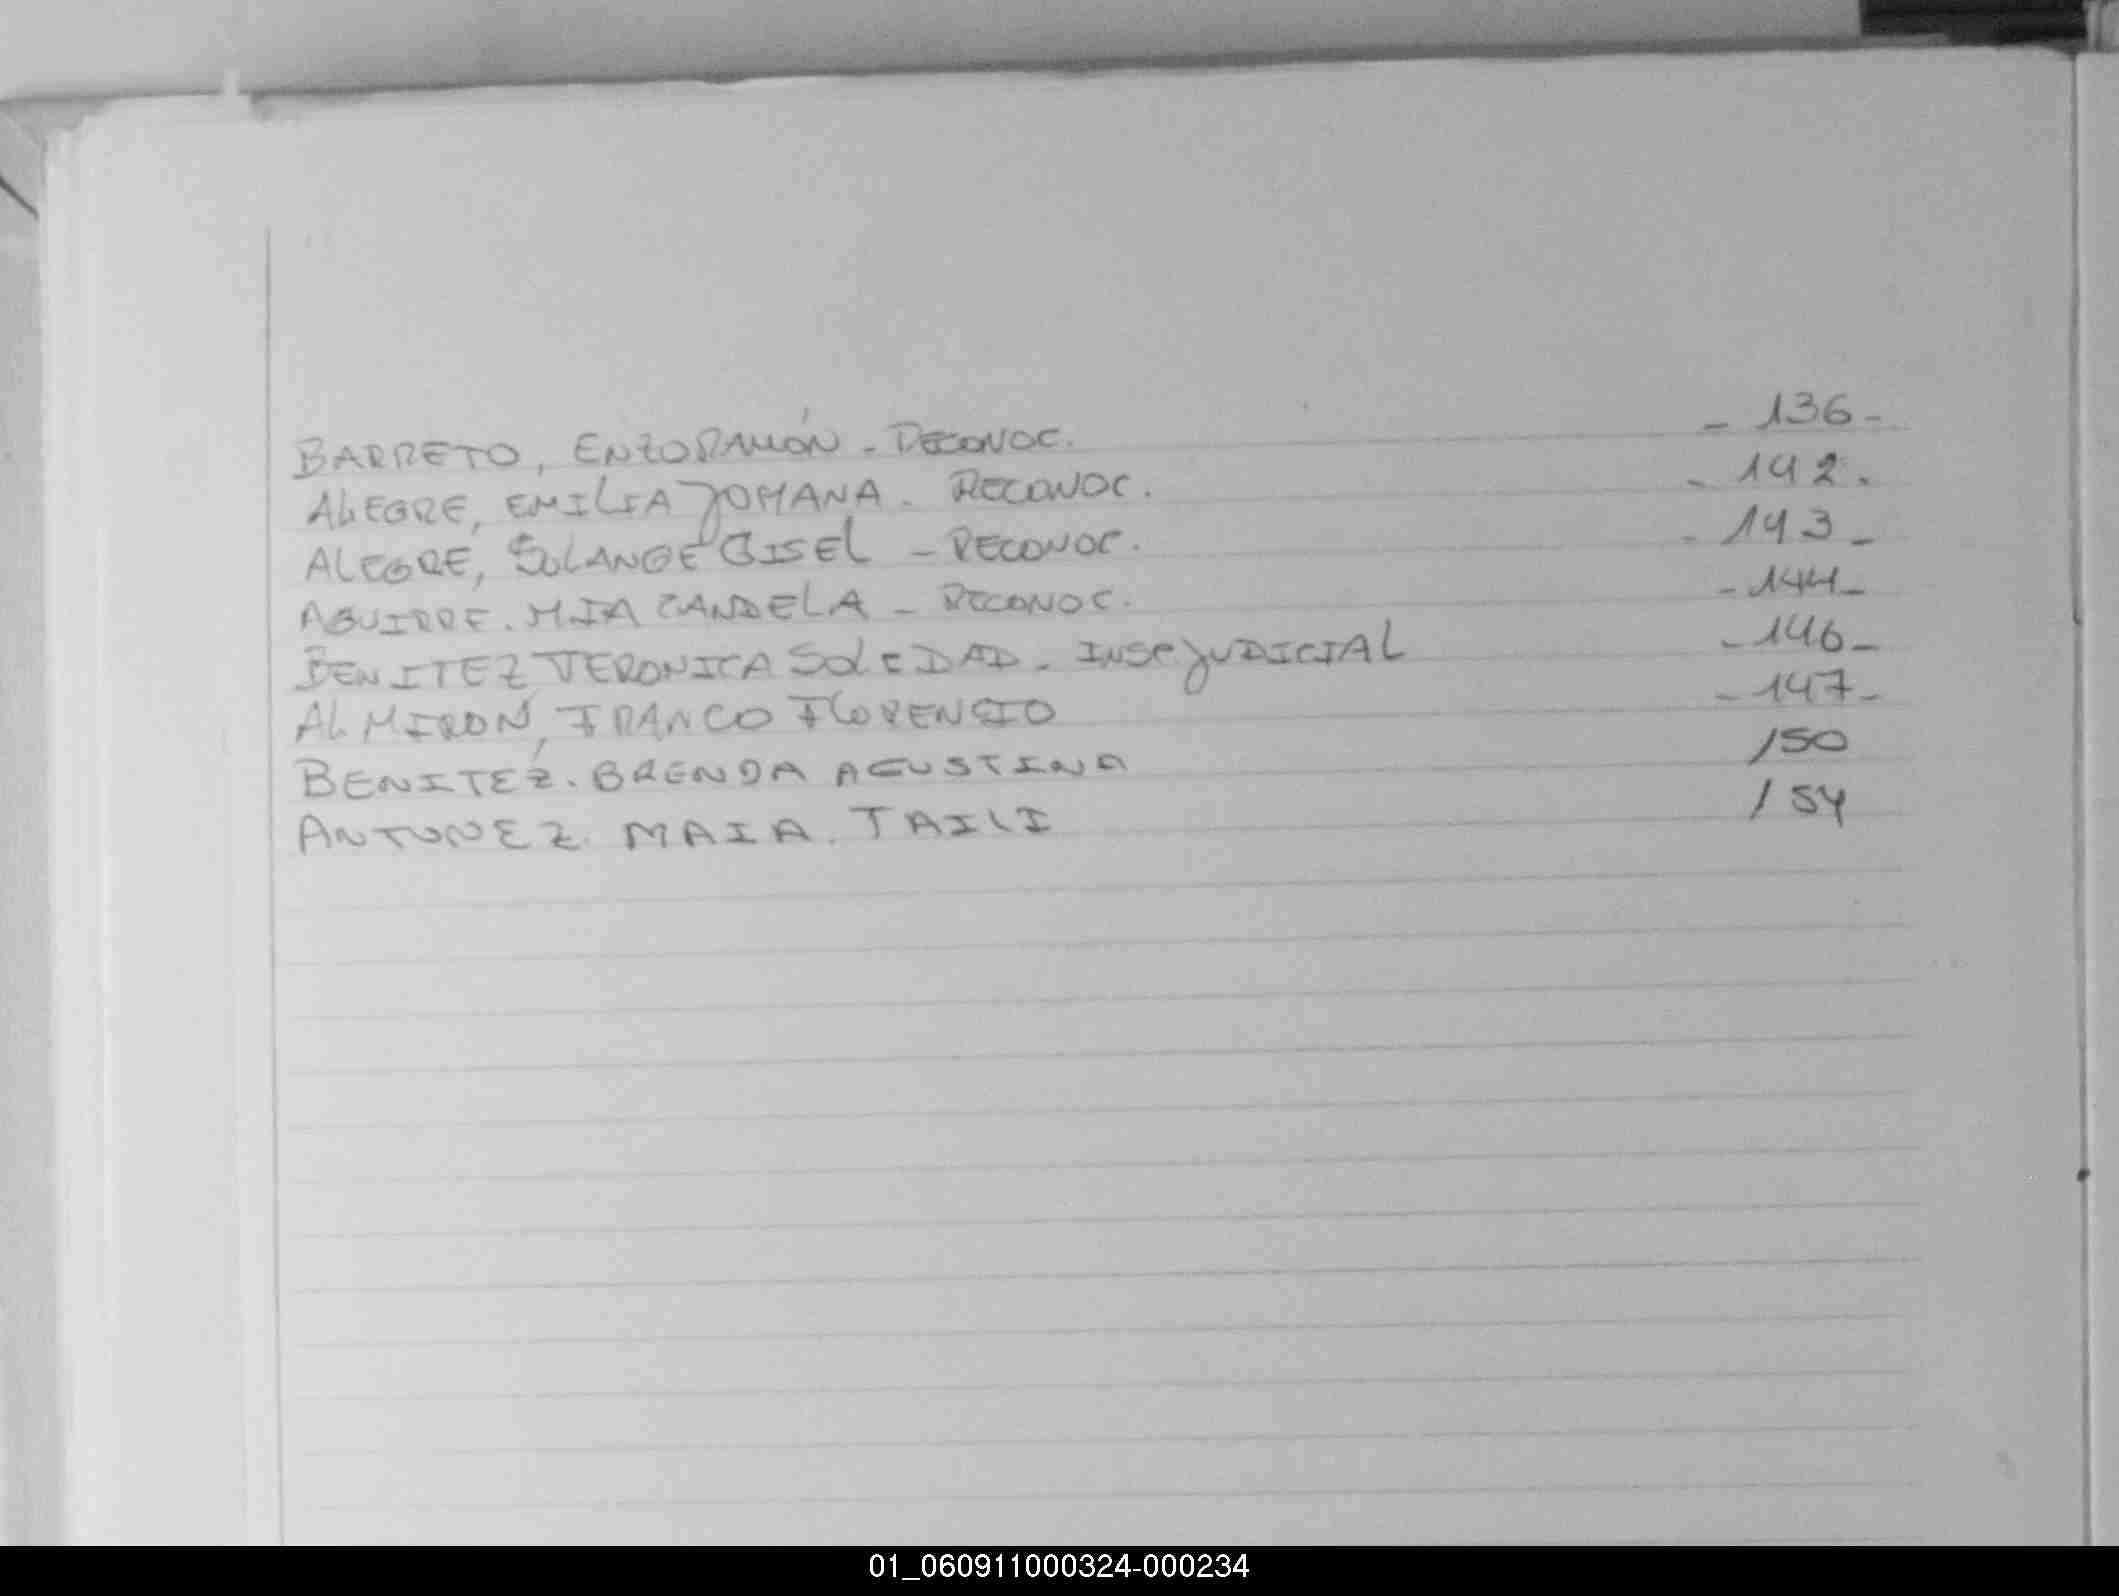 BARRETO, ENZO RAMÓN - RECONOC. - 136 -
ALEGRE, EMILIA YOMANA. RECONOC. - 142.
ALEGRE, SOLANGE GISEL - RECONOC. - 143 -
AGUIRRE. MIA CANDELA - RECONOC. - 144 -
BENITEZ VERONICA SOLEDAD - INSC JUDICIAL - 146 -
ALMIRÓN, FRANCO FLORENCIO - 147 -
BENITEZ. BRENDA AGUSTINA 150
ANTUNEZ. MAIA. TAILI 154
01_060911000324-000234